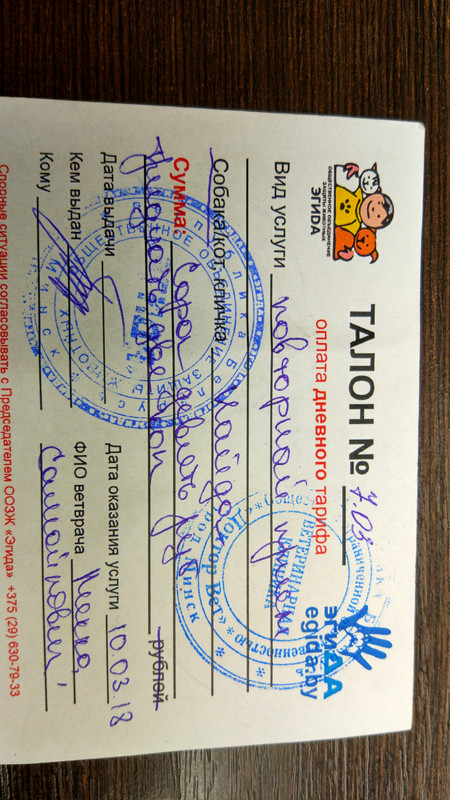 ОБЩЕСТВЕННОЕ ОБЪЕДИНЕНИЕ
ЗАЩИТЫ ЖИВОТНЫХ
ЭГИДА
ТАЛОН № 7.03
оплата дневного тарифа
эгида
egida.by
Вид услуги повторный прием
Собака/кот, кличка Найда
Сумма: Сорок девять руб
рублей
Дата выдачи
Дата оказания услуги 10.03.18
Кем выдан
ФИО ветврача
Кому
Самойлович
Спорные ситуации согласовывать с Председателем ООЗЖ «Эгида» +375 (29) 630-79-33